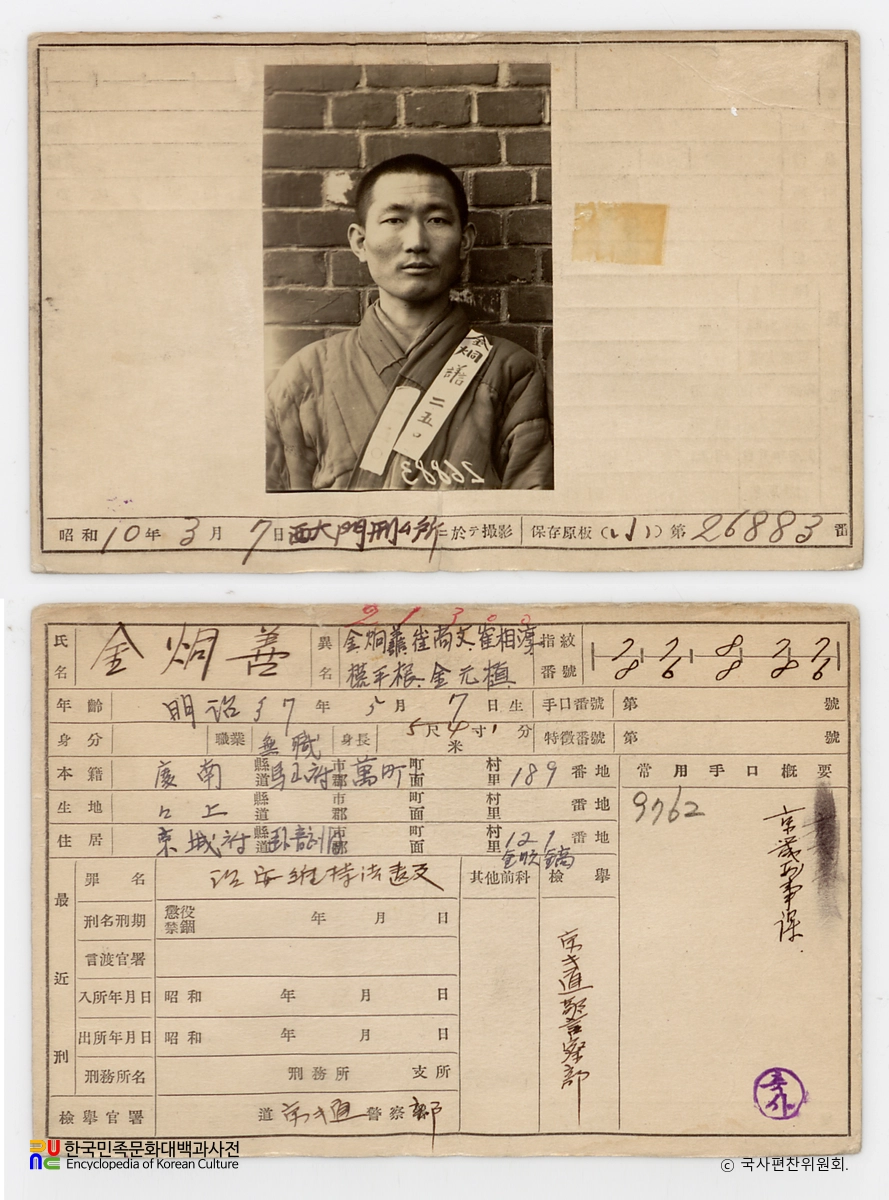 金炯善 二五〇
26883
昭和10年3月7日西大門刑ム所ニ於テ撮影 保存原板(小)第26883番
21300
氏名 金炯善 異名 金炯善、崔尚文、崔相淳 指紋番號
權平根、金元植
年齡 明治37年5月7日生 手口番號 第 號
身分 職業 無職 身長 5尺4寸1分 米 特徵番號 第 號
本籍 慶南 縣道 馬山府 市郡 萬町 町面 村里 189 番地 常用手口概要
生地 仝上 縣道 市郡 町面 村里 番地 9762
住居 京城府 縣道 市郡 町面 村里 121 番地
京畿刑事課
最近刑
罪名 治安維持法違反 其他前科 檢擧
刑名刑期 懲役 禁錮 年 月 日
言渡官署
入所年月日 昭和 年 月 日
出所年月日 昭和 年 月 日
刑務所名 刑務所 支所
檢擧官署 道 京キ道 警察 部
京キ道警察部
복사
한국민족문화대백과사전
Encyclopedia of Korean Culture
© 국사편찬위원회.